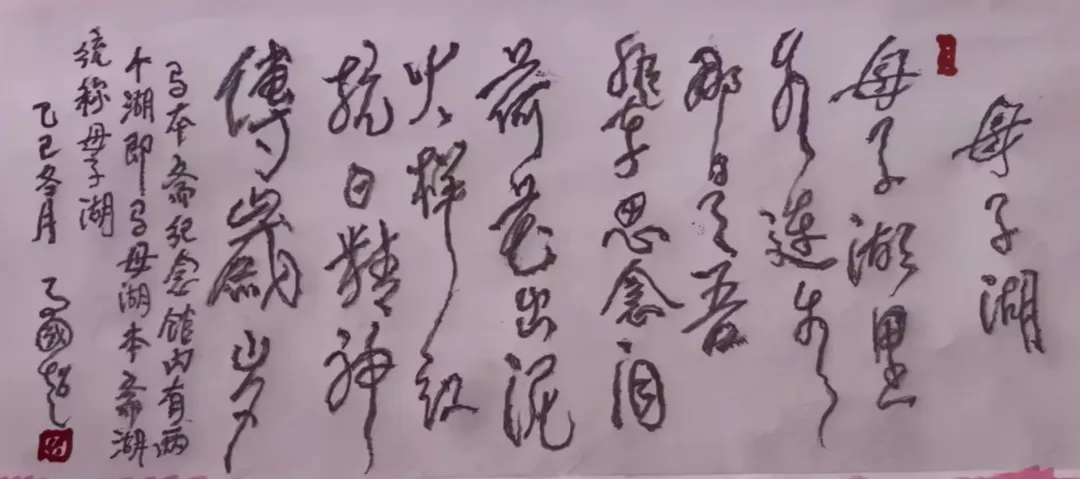 母子湖
母子湖里
水连水
那是吾
思念泪
荷花出泥
火样红
抗日精神
傳歲岁
马本斋纪念馆内有两
个湖即马母湖本斋湖
统称母子湖
乙巳冬月 马國超